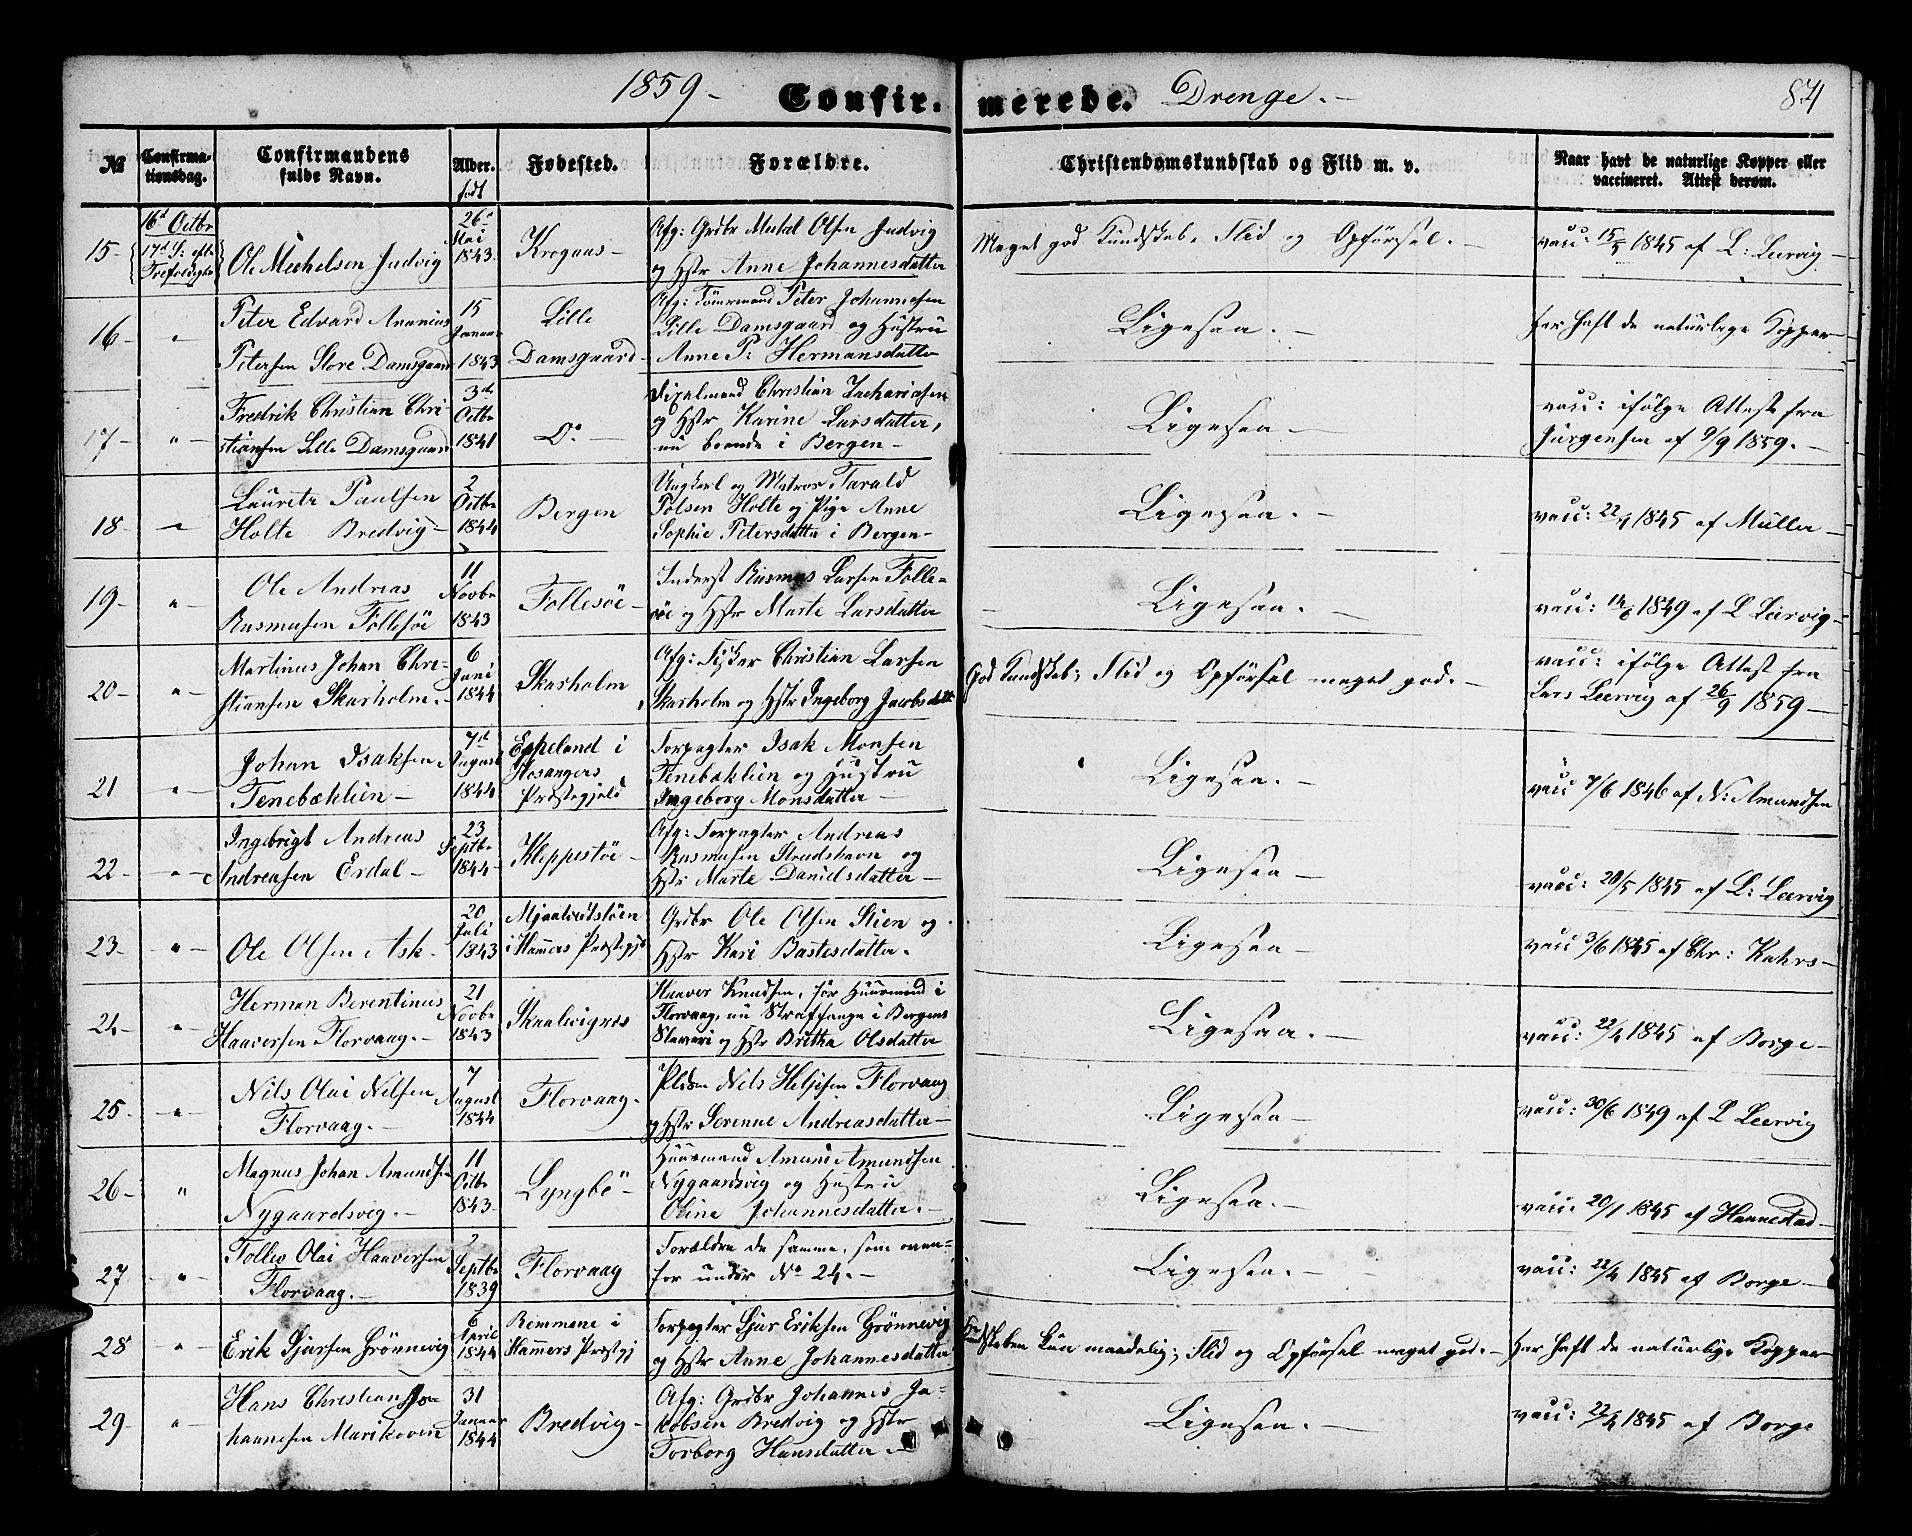 1859 - Confir- merede. Drenge. -
84
№
Confirma-
tionsdag.
Confirmandens
fulde Navn.
Alder.
født
Fødested.
Forældre.
Christendomskundskab og Flid m. v.
Naar havt de naturlige Kopper eller
vaccineret. Attest derom.
15-
16d Octbr
17d S: eft
Trefoldighed
Ole Michelsen Judvig
26d
Mai
1843-
Krogaas-
Afg: Grdbr Mickel Olsen Judvig
og Hstr Anne Johannesdatter
Meget god Kundskab, Flid og Opførsel. -
vacc: 15/5 1845 af L: Leervig-
16 - "-
Peter Edvard Ananias
Petersen Store Damsgaard
15
Januar
1843
Lille
Damsgaard-
Afg: Tømrmand Peter Johannesen
Lille Damsgaard og Hustru
Anne P: Hermansdatter
Ligesaa. -
har haft de naturlige Kopper
17- "-
Fredrik Christian Chri
stiansen Lille Damsgaard
3de
Octbr
1841
Do -
Christian Zachariasen
og Hstr Karine Larsdatter,
nu boende i Bergen-
Ligesaa-
vacc: ifølge Attest fra
Jürgensen af 9/9 1859. -
18- "-
Lauritz Paulsen
Holte Bredvig-
2
Octbr
1844
Bergen
Ungkarl og Matros Tarald
Polsen Holte og Pige Anne
Sophie Petersdatter i Bergen-
Ligesaa. -
vacc: 22/4 1845 af Müller-
19- "-
Ole Andreas
Rasmussen Follesöe
11
Novbr
1843
Follesöe-
Inderst Rasmus Larsen Folle-
söe og Hstr Marte Larsdatter
Ligesaa. -
vacc: 14/6 1849 af L Leervig-
20- "-
Martinus Johan Chri-
stiansen Skarholm-
6
Juni
1844
Skarholm
Afg: Fisker Christian Larsen
Skarholm og Hstr Ingeborg Jacobsdatt
God Kundskab; Flid og Opførsel meget god. -
vacc: ifølge Attest fra
Lars Leervig af 26/9 1859-
21 "-
Johan Isaksen
Tenebæklien-
7d
August
1844
Espeland i
Hosangers
Præstegjeld
Forpagter Isak Monsen
Tenebæklien og Hustru
Ingeborg Monsdatter-
Ligesaa. -
vacc 7/6 1846 af N: Amundsen
22- "-
Ingebrigt Andreas
Andreasen Erdal-
23
Septbr
1844-
Kleppestöe-
Afg: Forpagter Andreas
Rasmusen Strudshavn og
Hstr Marte Danielsdatter-
Ligesaa-
vacc: 20/5 1845 af L: Leervig
23- "-
Ole Olsen Ask-
20
Juli
1843
i Hammers Præstegj:
Grdbr Ole Olsen Stien og
Hstr Kari Bastesdatter.
Ligesaa-
vacc 3/6 1845 af Chr: Kahrs-
24- "-
Herman Berentinus
Haaversen Florvaag. -
21
Novbr
1843
Skaalvignæs
Haaver Knudsen, før Huusmand i
Florvaag, nu Straffange i Bergens
Slaveri og Hstr Britha Olsdatter
Ligesaa. -
vacc: 22/4 1845 af Borge-
25- "-
Nils Olai Nilsen
Florvaag. -
7
August
1844
Florvaag-
Nils Heljesen Florvaag
og Hstr Serenne Andreasdatter-
Ligesaa-
vacc: 30/6 1849 af L Leervig
26- "
Magnus Johan Amundsen
Nygaardsvig. -
11
Octbr
1843-
Lyngbö-
Huusmand Amund Amundsen
Nygaardsvig og Hustru
Oline Johannesdatter. -
Ligesaa. -
vacc: 20/1 1845 af Hannestad-
27 - "-
Tollev Olai Haaversen
Florvaag. -
2
Septbr
1839
Florvaag
Forældre de samme, som oven-
for under No 24. -
Ligesaa. -
vacc: 22/4 1845 af Borge-
28 "-
Erik Sjursen Grönnevig
6
April
1844
Remmene i
Hammers Præstegj
Forpagter Sjur Eriksen Grönnevig
og Hstr Anne Johannesdatter
Kundskaben kun maadelig; Flid og Opførsel meget god. -
Har haft de naturlige Kopper
29 "-
Hans Christian Jo-
hannesen Marikoven
31
Januar
1844
Bredvig-
Afg: Grdbr Johannes Ja-
kobsen Bredvig og Hstr
Torborg Hansdatter. -
Ligesaa. -
vacc: 22/4 1845 af Borge